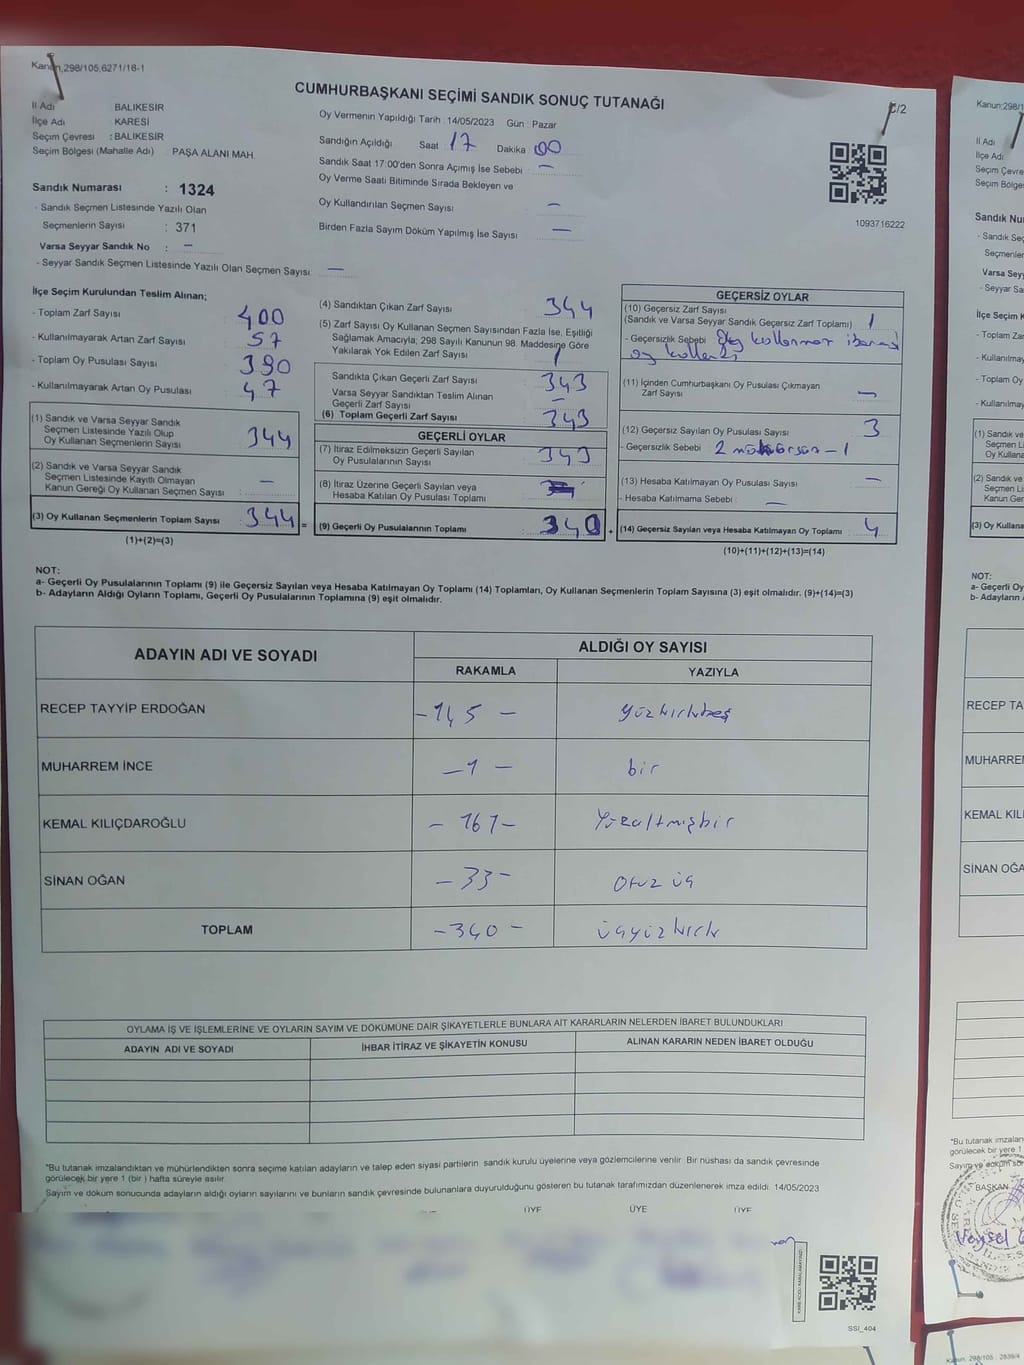 Kanun:298/105,6271/18-1
CUMHURBAŞKANI SEÇİMİ SANDIK SONUÇ TUTANAĞI
C/2
İl Adı BALIKESİR
İlçe Adı KARESİ
Seçim Çevresi : BALIKESİR
Seçim Bölgesi (Mahalle Adı) PAŞA ALANI MAH.
Sandık Numarası : 1324
- Sandık Seçmen Listesinde Yazılı Olan
Seçmenlerin Sayısı : 371
Varsa Seyyar Sandık No : —
- Seyyar Sandık Seçmen Listesinde Yazılı Olan Seçmen Sayısı: —
Oy Vermenin Yapıldığı Tarih : 14/05/2023 Gün : Pazar
Sandığın Açıldığı Saat 17 Dakika 00
Sandık Saat 17:00'den Sonra Açımış İse Sebebi : —
Oy Verme Saati Bitiminde Sırada Bekleyen ve
Oy Kullandırılan Seçmen Sayısı —
Birden Fazla Sayım Döküm Yapılmış İse Sayısı —
1093716222
İlçe Seçim Kurulundan Teslim Alınan;
- Toplam Zarf Sayısı 400
- Kullanılmayarak Artan Zarf Sayısı 57
- Toplam Oy Pusulası Sayısı 390
- Kullanılmayarak Artan Oy Pusulası 47
(1) Sandık ve Varsa Seyyar Sandık
Seçmen Listesinde Yazılı Olup
Oy Kullanan Seçmenlerin Sayısı 344
(2) Sandık ve Varsa Seyyar Sandık
Seçmen Listesinde Kayıtlı Olmayan
Kanun Gereği Oy Kullanan Seçmen Sayısı : —
(3) Oy Kullanan Seçmenlerin Toplam Sayısı 344 =
(1)+(2)=(3)
(4) Sandıktan Çıkan Zarf Sayısı 344
(5) Zarf Sayısı Oy Kullanan Seçmen Sayısından Fazla İse, Eşitliği
Sağlamak Amacıyla; 298 Sayılı Kanunun 98. Maddesine Göre
Yakılarak Yok Edilen Zarf Sayısı 1
Sandıkta Çıkan Geçerli Zarf Sayısı 343
Varsa Seyyar Sandıktan Teslim Alınan
Geçerli Zarf Sayısı —
(6) Toplam Geçerli Zarf Sayısı 343
GEÇERLİ OYLAR
(7) İtiraz Edilmeksizin Geçerli Sayılan
Oy Pusulalarının Sayısı 343
(8) İtiraz Üzerine Geçerli Sayılan veya
Hesaba Katılan Oy Pusulası Toplamı
(9) Geçerli Oy Pusulalarının Toplamı 340 +
GEÇERSİZ OYLAR
(10) Geçersiz Zarf Sayısı
(Sandık ve Varsa Seyyar Sandık Geçersiz Zarf Toplamı) 1
- Geçersizlik Sebebi
oy
(11) İçinden Cumhurbaşkanı Oy Pusulası Çıkmayan
Zarf Sayısı —
(12) Geçersiz Sayılan Oy Pusulası Sayısı 3
- Geçersizlik Sebebi 2
(13) Hesaba Katılmayan Oy Pusulası Sayısı —
- Hesaba Katılmama Sebebi : —
(14) Geçersiz Sayılan veya Hesaba Katılmayan Oy Toplamı 4
(10)+(11)+(12)+(13)=(14)
NOT:
a- Geçerli Oy Pusulalarının Toplamı (9) ile Geçersiz Sayılan veya Hesaba Katılmayan Oy Toplamı (14) Toplamları, Oy Kullanan Seçmenlerin Toplam Sayısına (3) eşit olmalıdır. (9)+(14)=(3)
b- Adayların Aldığı Oyların Toplamı, Geçerli Oy Pusulalarının Toplamına (9) eşit olmalıdır.
ADAYIN ADI VE SOYADI ALDIĞI OY SAYISI
RAKAMLA YAZIYLA
RECEP TAYYİP ERDOĞAN -145 - yüzkırkbeş
MUHARREM İNCE -1 - bir
KEMAL KILIÇDAROĞLU - 161- Yüzaltmışbir
SİNAN OĞAN -33- otuz üç
TOPLAM -340 - üçyüzkırk
OYLAMA İŞ VE İŞLEMLERİNE VE OYLARIN SAYIM VE DÖKÜMÜNE DAİR ŞİKAYETLERLE BUNLARA AİT KARARLARIN NELERDEN İBARET BULUNDUKLARI
ADAYIN ADI VE SOYADI İHBAR İTİRAZ VE ŞİKAYETİN KONUSU ALINAN KARARIN NEDEN İBARET OLDUĞU
*Bu tutanak imzalandıktan ve mühürlendikten sonra seçime katılan adayların ve talep eden siyasi partilerin sandık kurulu üyelerine veya gözlemcilerine verilir. Bir nüshası da sandık çevresinde
görülecek bir yere 1 (bir ) hafta süreyle asılır.
Sayım ve döküm sonucunda adayların aldığı oyların sayılarını ve bunların sandık çevresinde bulunanlara duyurulduğunu gösteren bu tutanak tarafımızdan düzenlenerek imza edildi. 14/05/2023
ÜYE ÜYE ÜYE
SSI_404
Kanun:298/1
İl Adı
İlçe Adı
Seçim Çevre
Seçim Bölges
Sandık Nu
- Sandık Seç
Seçmenler
Varsa Seyy
- Seyyar San
İlçe Seçim
- Toplam Za
- Kullanılma
- Toplam Oy
- Kullanılma
(1) Sandık ve
Seçmen Li
Oy Kullana
(2) Sandık ve
Seçmen L
Kanun Ge
(3) Oy Kullana
NOT:
a- Geçerli Oy
b- Adayların A
RECEP TA
MUHARREM
KEMAL KILI
SİNAN OĞA
*Bu tutanak imzalan
görülecek bir yere 1
Sayım ve döküm so
BAŞKAN
Veysel
Kanun: 298/105 , 2839/4